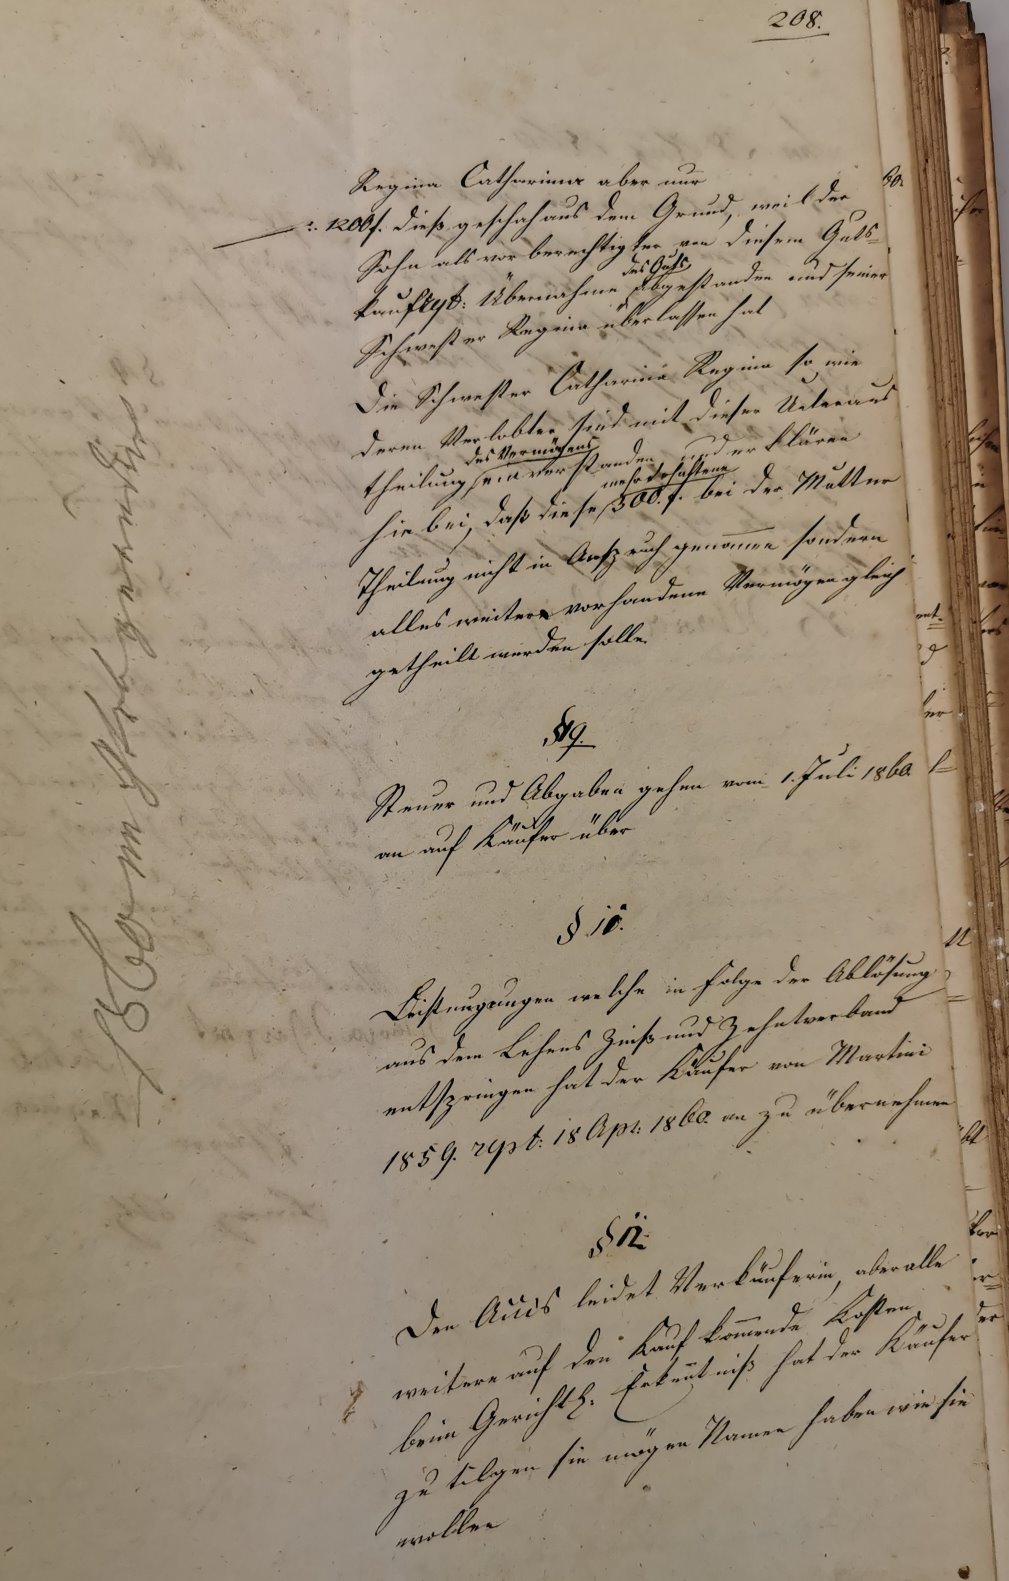 208.
Regina Catharina aber nur
1200f. dieß geschah aus dem Grund, weil der
Sohn als vorberechtigter von diesem Guts-
kauf rept: Übernahme des Guts abgestanden und seiner
Schwester Regina überlassen hat
Die Schwester Catharina Regina so wie
deren Verlobter sind mit dieser
theilung des Vermögens einverstanden und erklären
hiebei, daß diese mehr erhaltene 300.f. bei der Mutter
Theilung nicht in Anspruch genomen sondern
alles weitere vorhandene Vermögen gleich
getheilt werden solle.
§ 9.
Steuer und Abgaben gehen vom 1. Juli 1860
an auf Käufer über
§ 10.
Leistungungen welche in Folge der Ablösung
aus dem Lehens Zinß und Zehntverband
entspringen hat der Käufer von Martini
1859. rept: 18 Apr: 1860. an zu übernehmen
§ 12.
Den Accis leidet Verkäuferin, aber alle
weitere auf den Kauf komende Kosten
beim Gerichtl. Erkentniß hat der Käufer
zu tilgen sie mögen Namen haben wie sie
wollen